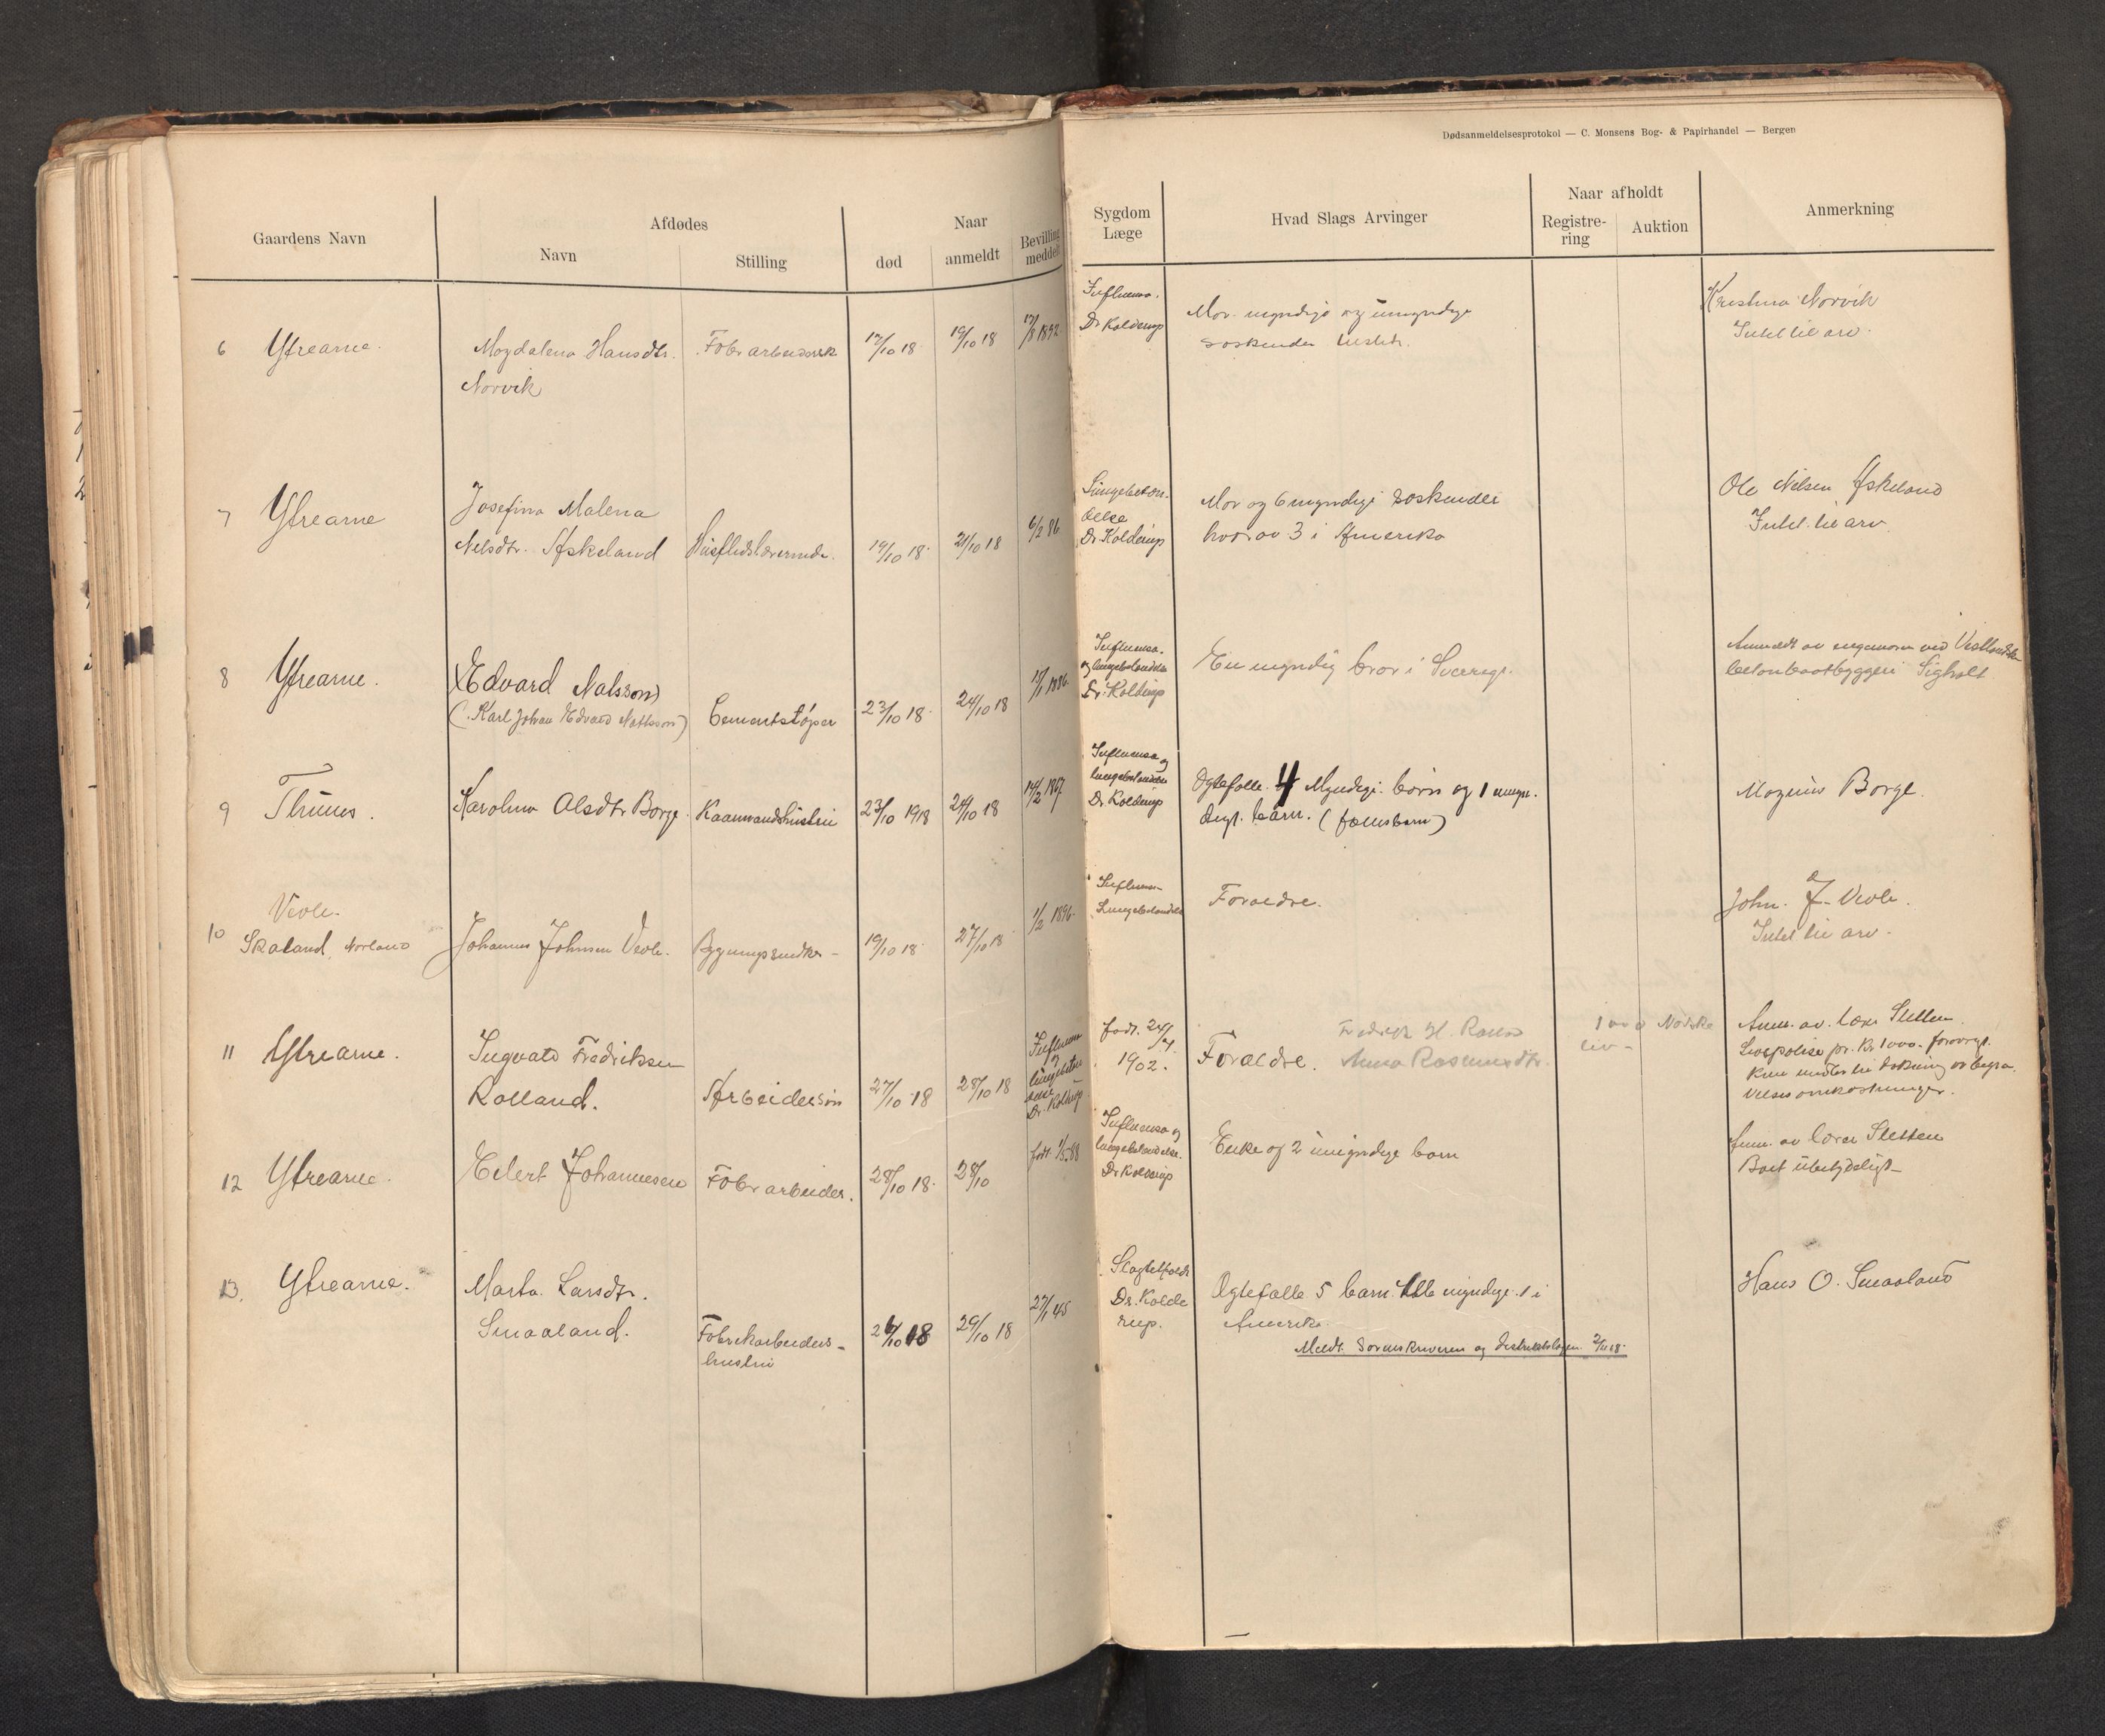 Dødsanmeldelsesprotokol — C. Monsens Bog- & Papirhandel — Bergen
Gaardens Navn
Afdødes
Navn
Stilling
Naar
død
anmeldt
Bevilling
meddelt
Sygdom
Læge
Hvad Slags Arvinger
Naar afholdt
Registre-
ring
Auktion
Anmerkning
6 Ytrearne.
Magdalena Hansdtr.
Norvik
Fabr arbeiderske
17/10 18
19/10 18
Influensa.
Dr Kolderup
Mor. myndige og umyndige
søskender
Kristina Norvik
Intet til arv.
7 Ytrearne
Josefina Malena
Nelsdtr. Askeland
Husflidslærerinde.
19/10 18
21/10 18
6/2 86
Lungebetæn-
delse
Dr. Kolderup
Mor og 6 myndige søskender
hvorav 3 i Amerika
Ole Nilsen Askeland
Intet til arv.
8 Ytrearne.
Edvard Natsson
(Karl Johan Edvard Nattsson)
Cementstøper
23/10 18
24/10 18
Influensa.
og lungebetændelse
Dr. Kolderup
En myndig bror i Sverige.
betonbaatbyggeri Sigholt
9 Thunes.
Karolina Olsdtr Borge
Kaarmandshustru
23/10 1918
24/10 18
14/2 1867
Influensa og
lungebetændelse
Dr Kolderup
Ægtefælle. 4 Myndige børn og 1 umyn-
digt barn. (fællesbarn)
Magnus Borge.
10 Veole.
Skaland, Norland
Johannes Johnsen Veole.
Bygningssnedker
19/10 18
27/10 18
1/2 1896
Influensa
Lungebetændelse
Forældre.
John. J. Veole.
Intet til arv.
11 Ytrearne.
Ingvald Fredriksen
Rolland.
Arbeidersøn
27/10 18
28/10 18
Influensa
og
lungebetæn
delse
Dr. Kolderup
født. 24/4
1902.
Forældre.
Fredrik H. Rolland
Anna Rasmusdtr.
1000 Norske
liv-
Anm. av. Lærer Sletten.
Livspolise pr. Kr 1000- forøvrigt
kun midler til dækning av begra-
velsesomkostninger.
12 Ytrearne.
Eilert Johannesen
Fabr arbeider.
28/10 18
28/10
født 1/5 88
Influensa og
lungebetændelse.
Dr Kolderup
Enke og 2 umyndige barn
Anm. av Lærer Sletten
Boet ubetydeligt
13. Ytrearne.
Marta Larsdtr.
Smaaland.
Fabrikarbeiders-
hustru
26/10 18
29/10 18
27/1 45
Slagtilfælde
Dr. Kolde
rup.
Ægtefælle 5 barn. Alle myndige. 1 i
Amerika
Meldt. Sorenskriveren og distriktslægen 2/11 18.
Hans O. Smaaland